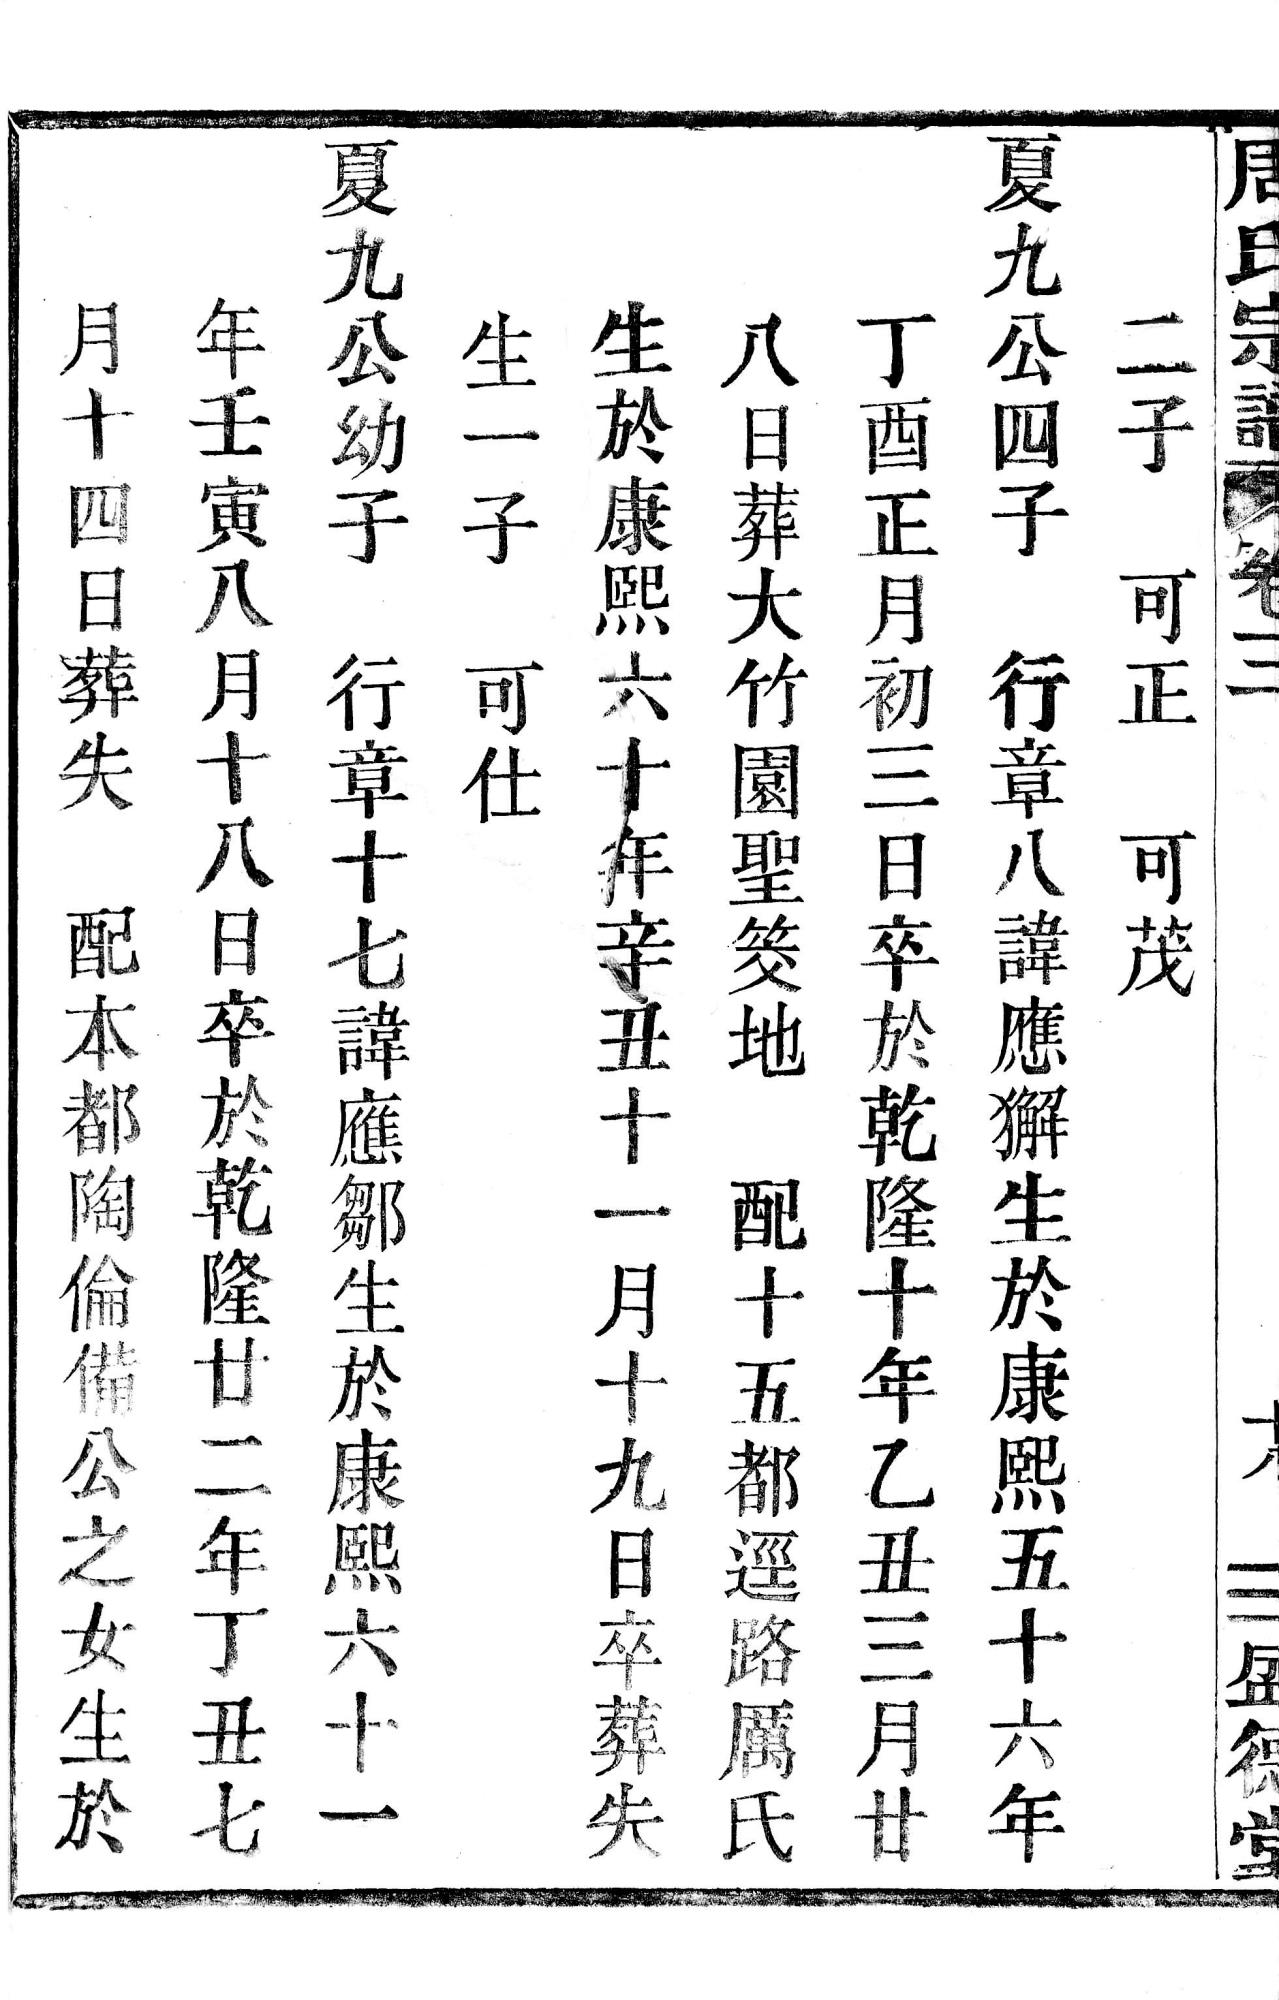 周氏宗譜 卷三 十八 三 盛德堂
二子 可正 可茂
夏九公四子 行章八諱應獬生於康熙五十六年
丁酉正月初三日卒於乾隆十年乙丑三月廿
八日葬大竹園聖筊地 配十五都逕路厲氏
生於康熙六十年辛丑十一月十九日卒葬失
生一子 可仕
夏九公幼子 行章十七諱應鄒生於康熙六十一
年壬寅八月十八日卒於乾隆廿二年丁丑七
月十四日葬失 配本都陶倫備公之女生於